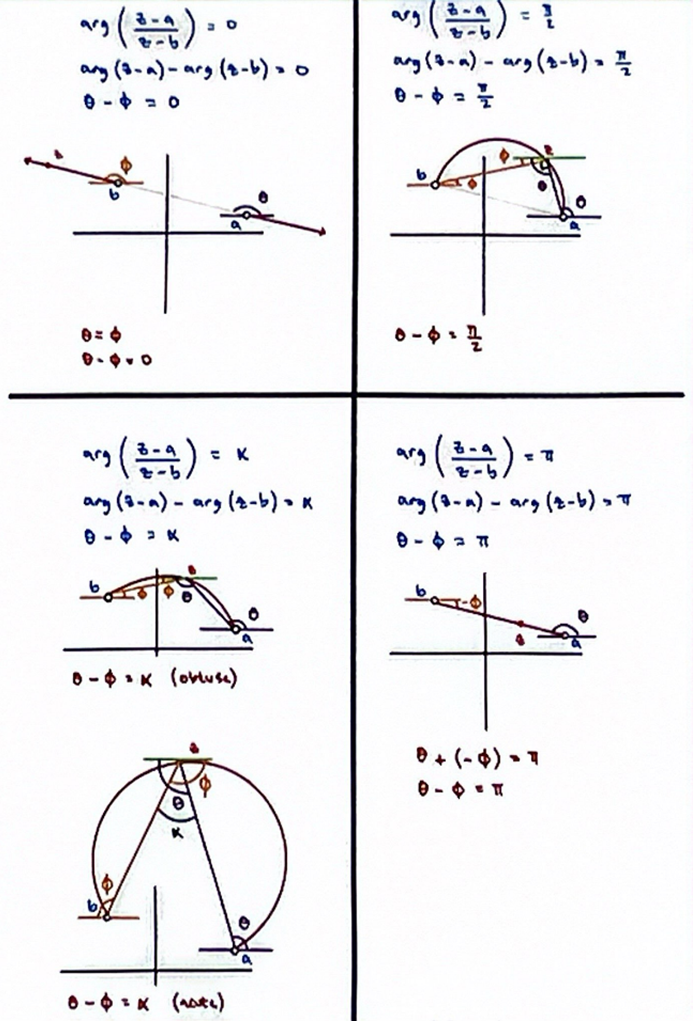 arg((z-a)/(z-b)) = 0
arg(z-a) - arg(z-b) = 0
θ - ϕ = 0
z
ϕ
b
θ
a
θ = ϕ
θ - ϕ = 0
arg((z-a)/(z-b)) = π/2
arg(z-a) - arg(z-b) = π/2
θ - ϕ = π/2
z
ϕ
b
ϕ
θ
θ
a
θ - ϕ = π/2
arg((z-a)/(z-b)) = K
arg(z-a) - arg(z-b) = K
θ - ϕ = K
z
b
ϕ
ϕ
θ
θ
a
θ - ϕ = K (obtuse)
z
ϕ
θ
K
ϕ
b
θ
a
θ - ϕ = K (acute)
arg((z-a)/(z-b)) = π
arg(z-a) - arg(z-b) = π
θ - ϕ = π
b
-ϕ
θ
z
a
θ + (-ϕ) = π
θ - ϕ = π